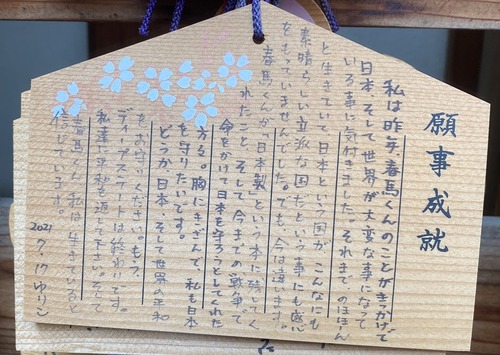 願事成就
私は昨年、春馬くんのことがきっかけで
日本、そして世界が大変な事になって
いる事に気付きました。それまで、のほほん
と生きていて日本という国が、こんなにも
素晴らしい立派な国だという事にも感心
をもっていませんでした。でも、今は違います。
春馬くんが「日本製」という本に残してく
れたこと、そして今までの戦争で
命をかけて日本を守ろうとしてくれた
方々。胸にきざんで、私も日本
を守りたいです。
どうか日本、そして世界の平和
をお守りください。もう、
ディープステートは終わりです。
私達に平和を返して下さい。そして
春馬くん、私は生きていると
信じています。
2021
7.17 ゆりこ